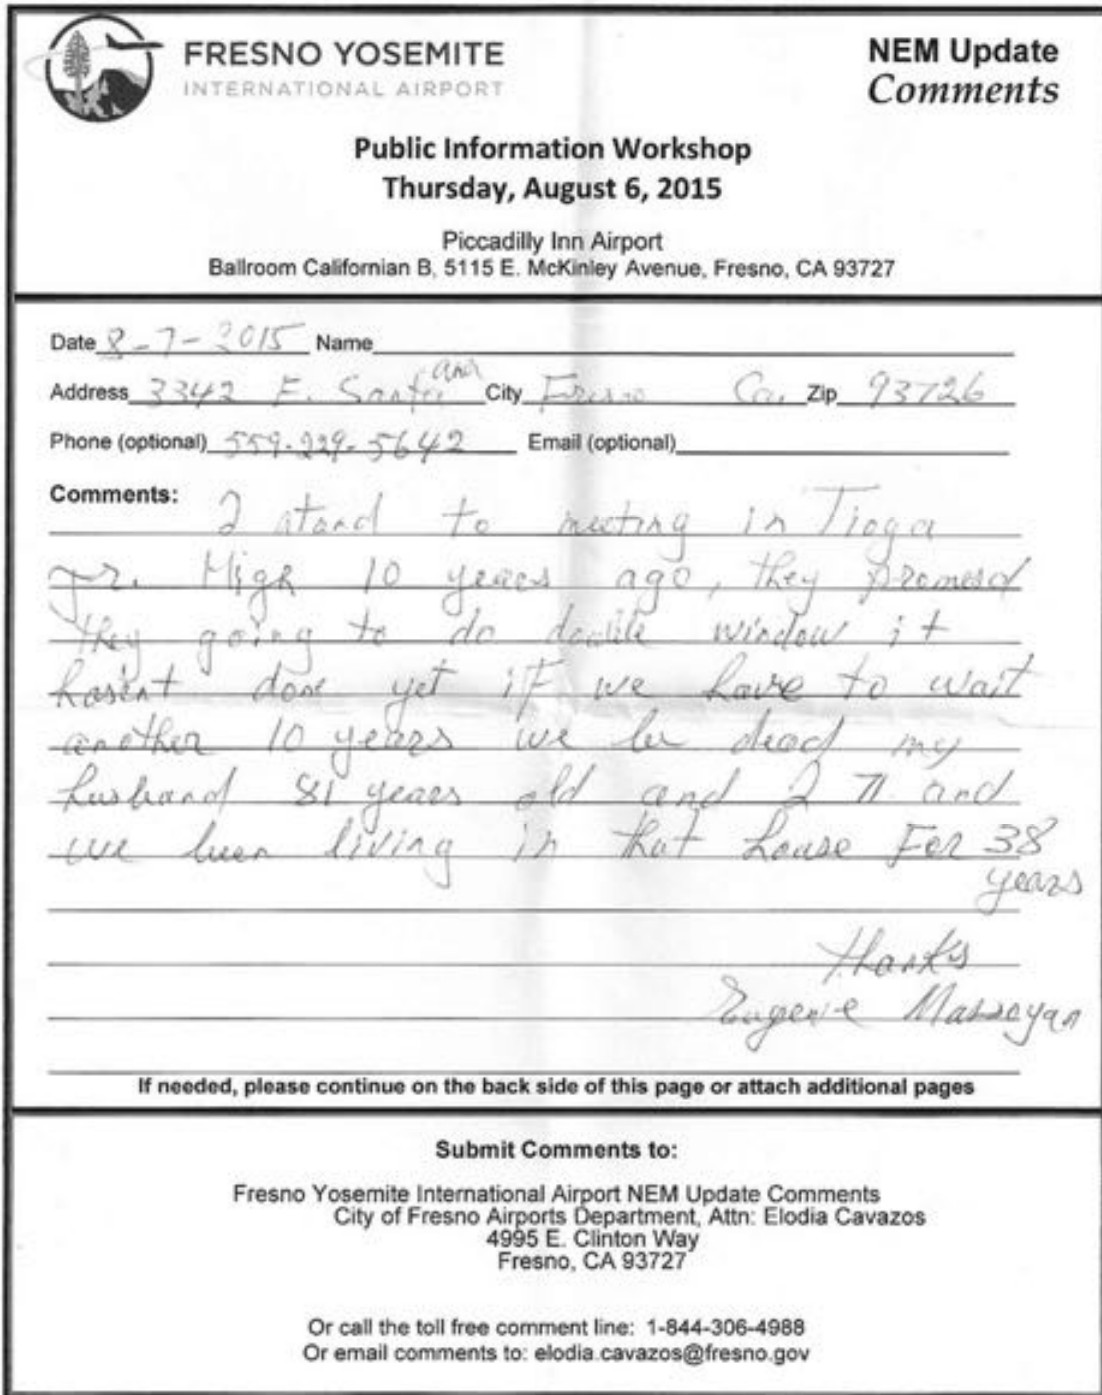 FRESNO YOSEMITE
INTERNATIONAL AIRPORT
NEM Update
Comments
Public Information Workshop
Thursday, August 6, 2015
Piccadilly Inn Airport
Ballroom Californian B, 5115 E. McKinley Avenue, Fresno, CA 93727
Date 8-7-2015 Name
Address 3342 E. Santa ana City Fresno Ca, Zip 93726
Phone (optional) 559-229-5642 Email (optional)
Comments: I atand to meeting in Tioga
Jr. High 10 years ago, they promesd
they going to do double window it
hasint done yet if we have to wait
another 10 years we be dead my
husband 81 years old and I 71 and
we been living in that house For 38
years
thanks
Eugenie Massoyan
If needed, please continue on the back side of this page or attach additional pages
Submit Comments to:
Fresno Yosemite International Airport NEM Update Comments
City of Fresno Airports Department, Attn: Elodia Cavazos
4995 E. Clinton Way
Fresno, CA 93727
Or call the toll free comment line: 1-844-306-4988
Or email comments to: elodia.cavazos@fresno.gov